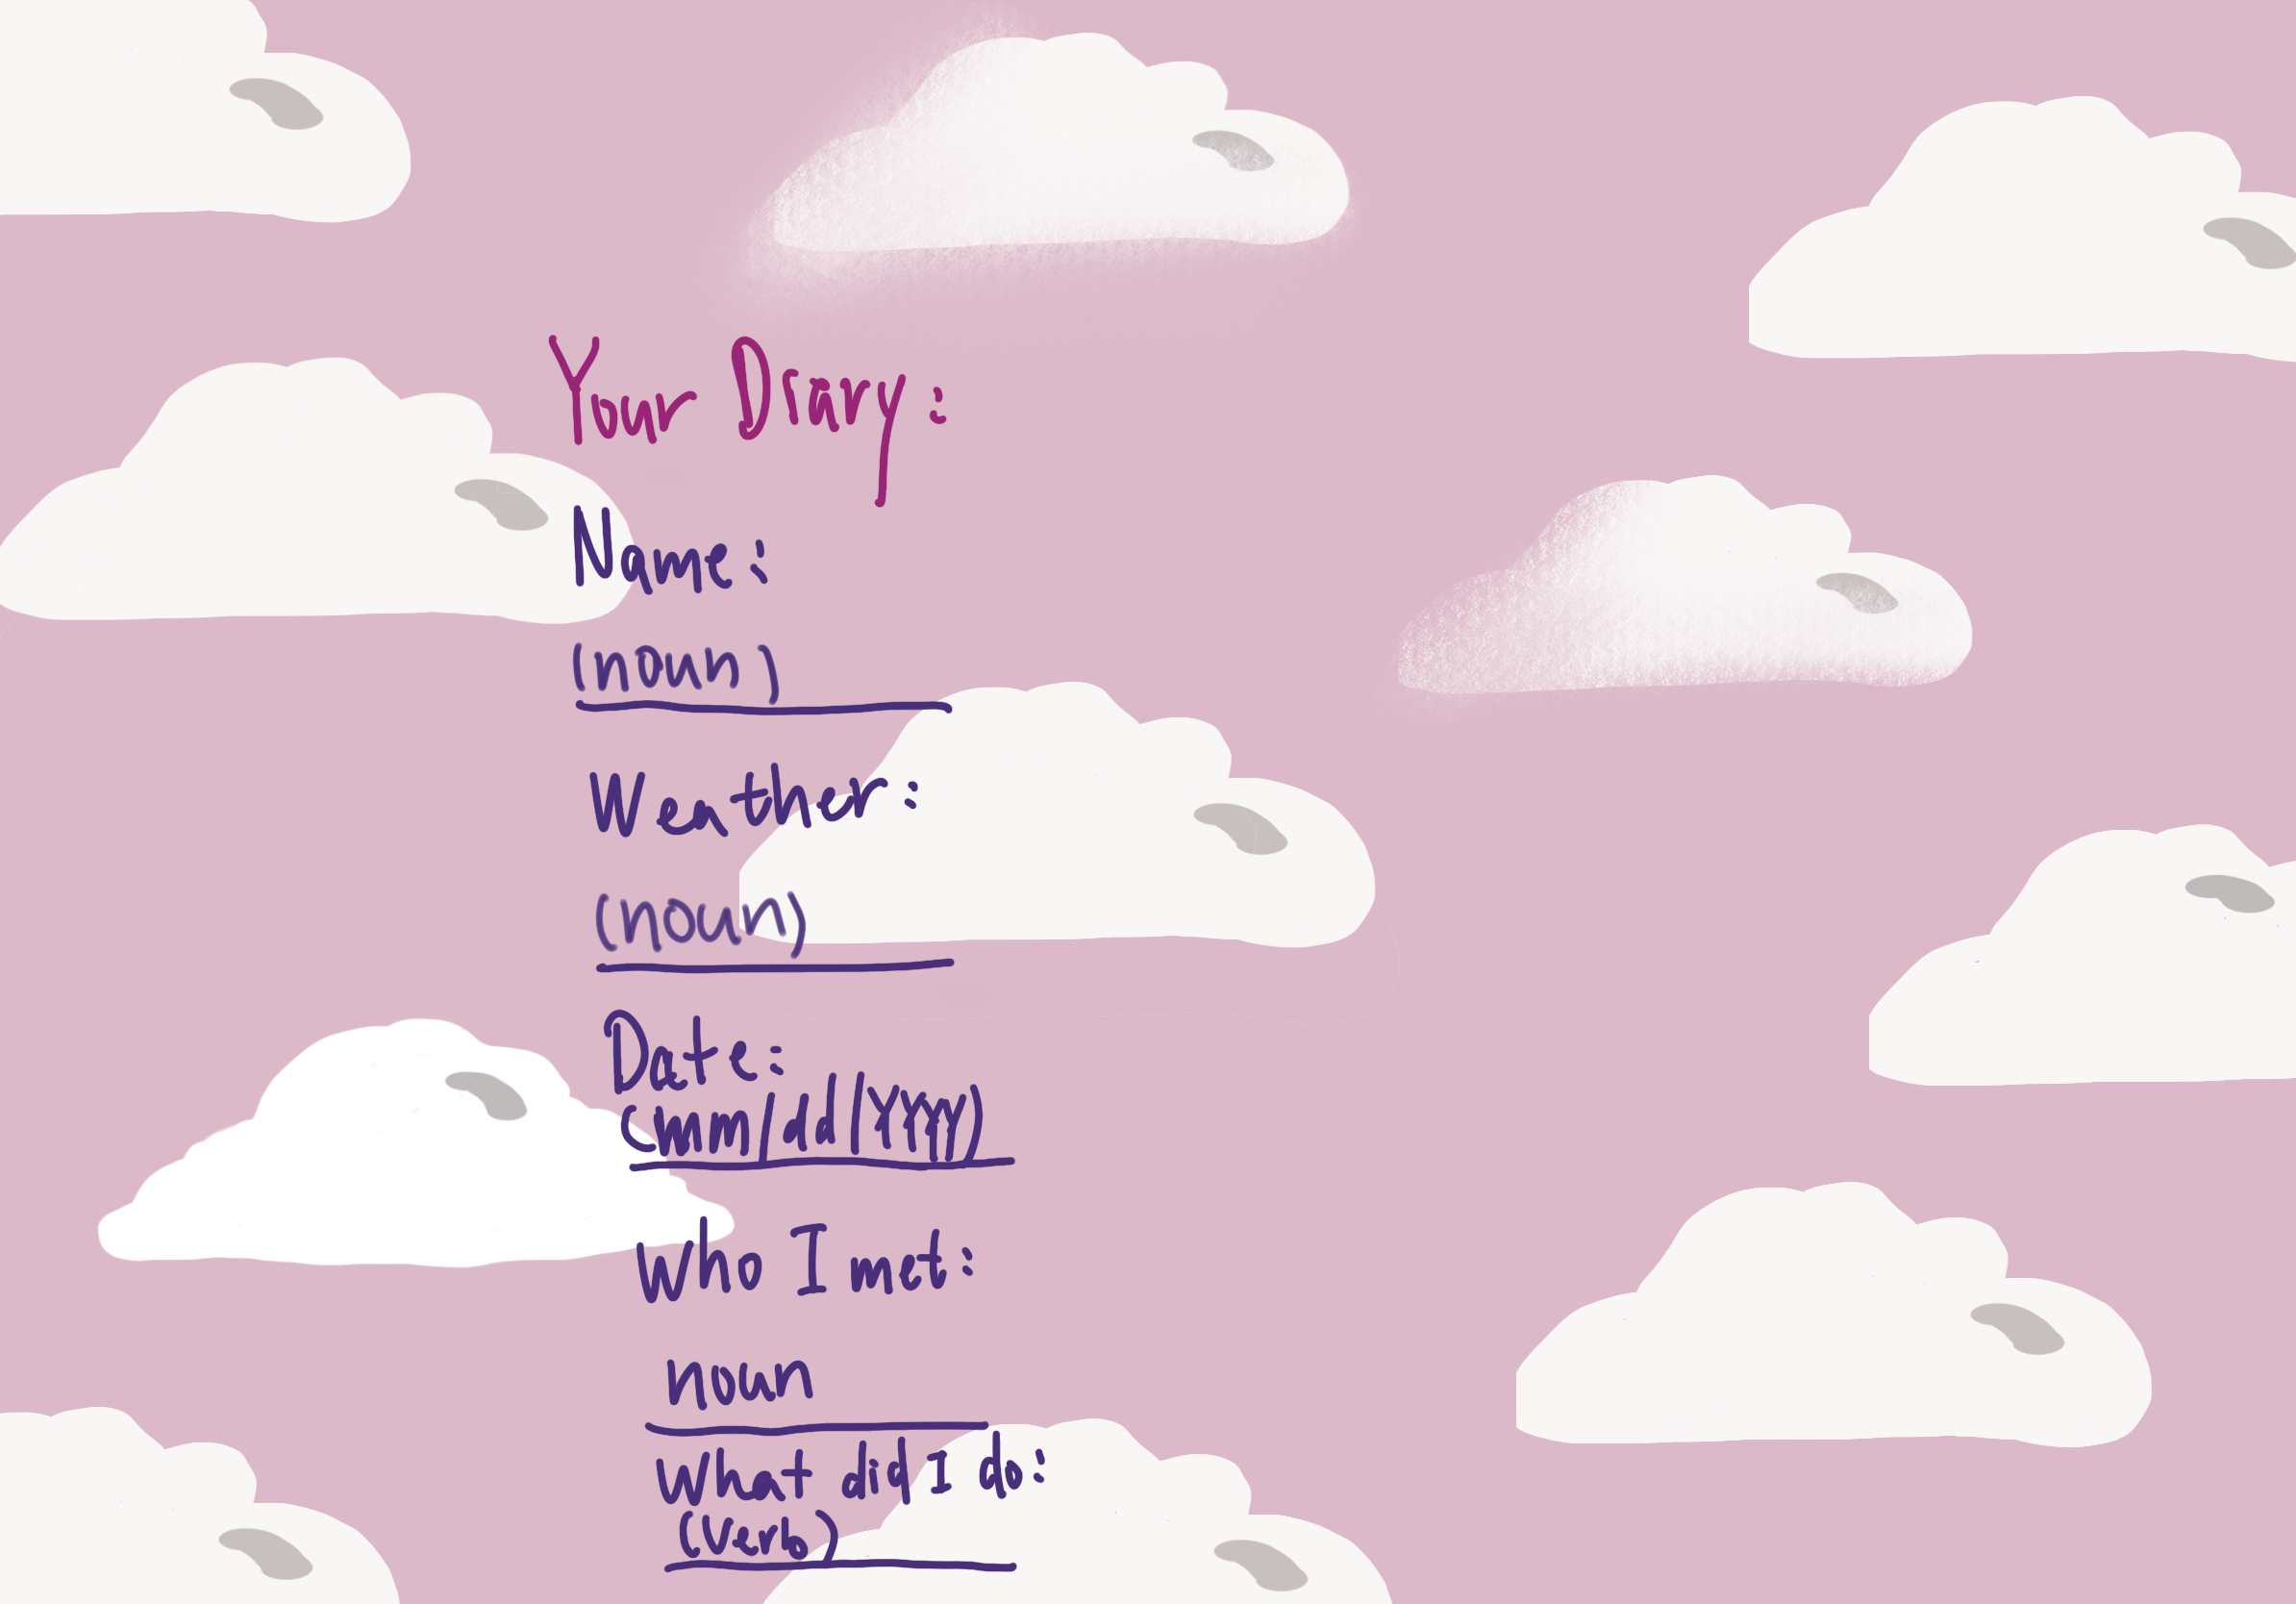 Your Diary:
Name:
(noun)
Weather:
(noun)
Date:
(mm/dd/yyyy)
Who I met:
noun
What did I do:
(verb)